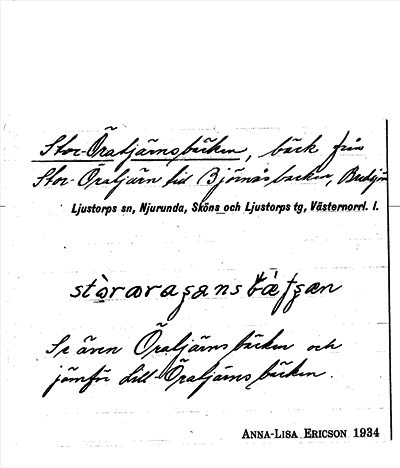 Stor-Öratjärnsbäcken, bäck från
Stor-Öratjärn till Björnåsbäcken,
Ljustorps sn, Njurunda, Sköns och Ljustorps tg, Västernorrl. l.
Se även Öratjärnsbäcken och
jämför Lill-Öratjärnsbäcken.
ANNA-LISA ERICSON 1934